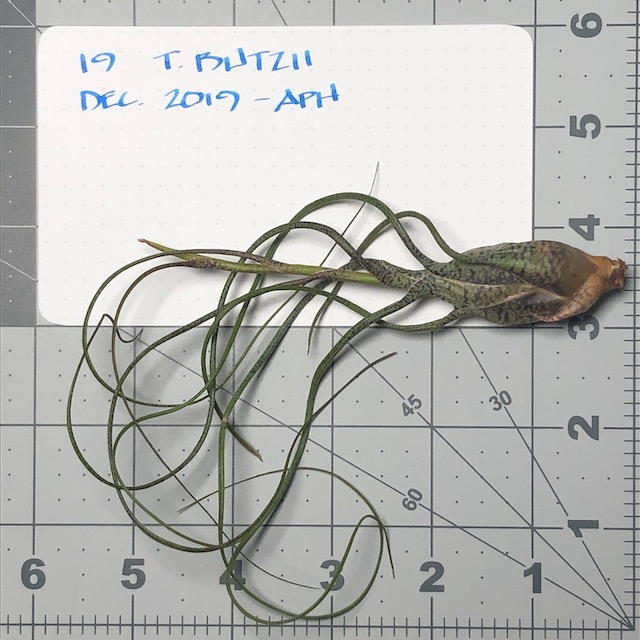 19 T. BUTZII
DEC. 2019 - APH
6
5
4
3
2
1
45
30
60
6 5 4 3 2 1